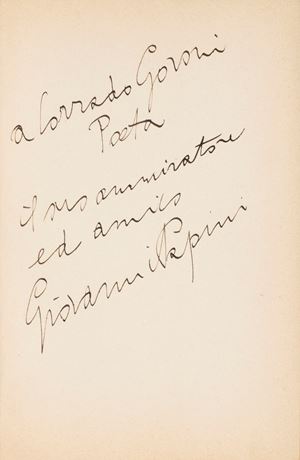 a Corrado Govoni
Poeta
il suo ammiratore
ed amico
Giovanni Papini